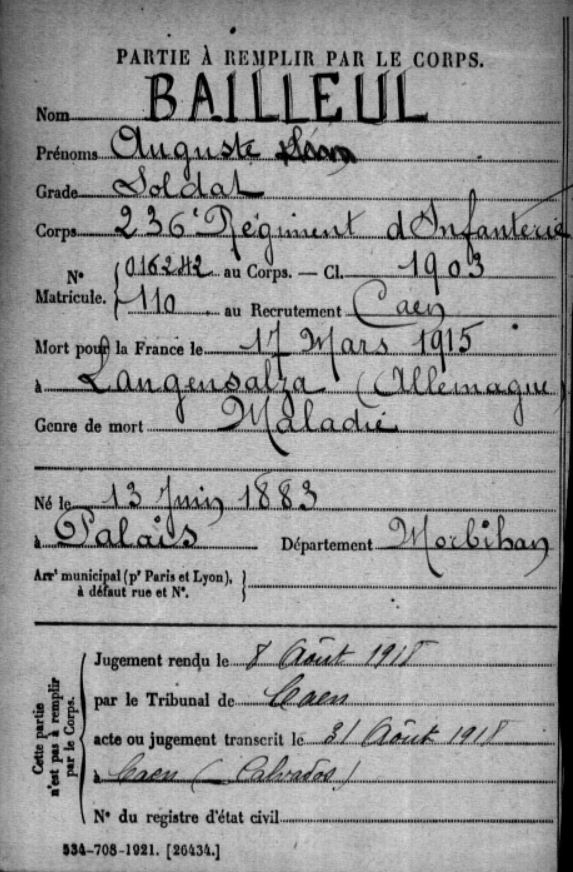 PARTIE À REMPLIR PAR LE CORPS.
Nom BAILLEUL
Prénoms Auguste
Grade Soldat
Corps 236e Régiment d'Infanterie
N° Matricule. { 016242 au Corps. — Cl. 1903
110 au Recrutement Caen
Mort pour la France le 17 Mars 1915
à Langensalza (Allemagne)
Genre de mort Maladie
Né le 13 Juin 1883
à Palais Département Morbihan
Arrt municipal (pr Paris et Lyon), à défaut rue et N°. }
Cette partie n'est pas à remplir par le Corps.
Jugement rendu le 8 Août 1918
par le Tribunal de Caen
acte ou jugement transcrit le 31 Août 1918
à Caen (Calvados)
N° du registre d'état civil
534-708-1921. [26434.]